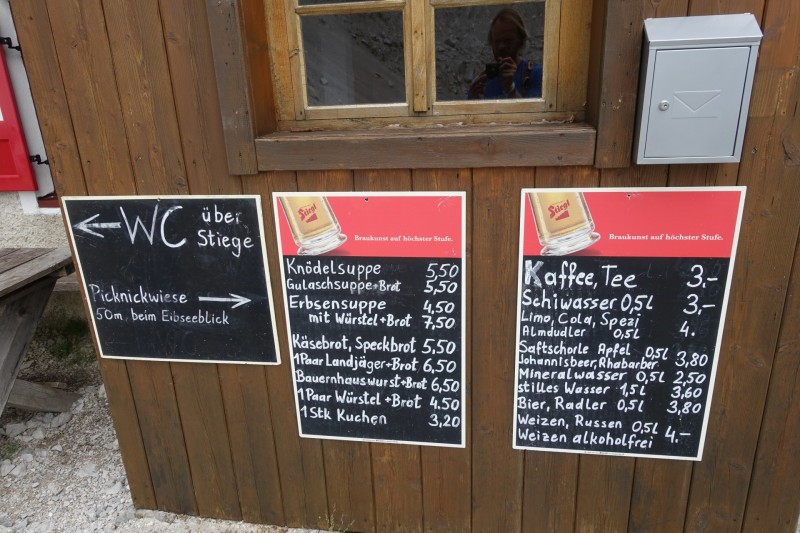 ← WC über
Stiege
Picknickwiese →
50m beim Eibseeblick
Stiegl
Braukunst auf höchster Stufe.
Knödelsuppe 5,50
Gulaschsuppe+Brot 5,50
Erbsensuppe 4,50
mit Würstel+Brot 7,50
Käsebrot, Speckbrot 5,50
1 Paar Landjäger+Brot 6,50
Bauernhauswurst+Brot 6,50
1 Paar Würstel+Brot 4,50
1 Stk Kuchen 3,20
Stiegl
Braukunst auf höchster Stufe.
Kaffee, Tee 3,-
Schiwasser 0,5l 3,-
Limo, Cola, Spezi
Almdudler 0,5l 4.
Saftschorle Apfel 0,5l
Johannisbeer, Rhabarber 3,80
Mineralwasser 0,5l 2,50
stilles Wasser 1,5l 3,60
Bier, Radler 0,5l 3,80
Weizen, Russen 0,5l
Weizen alkoholfrei 4,-